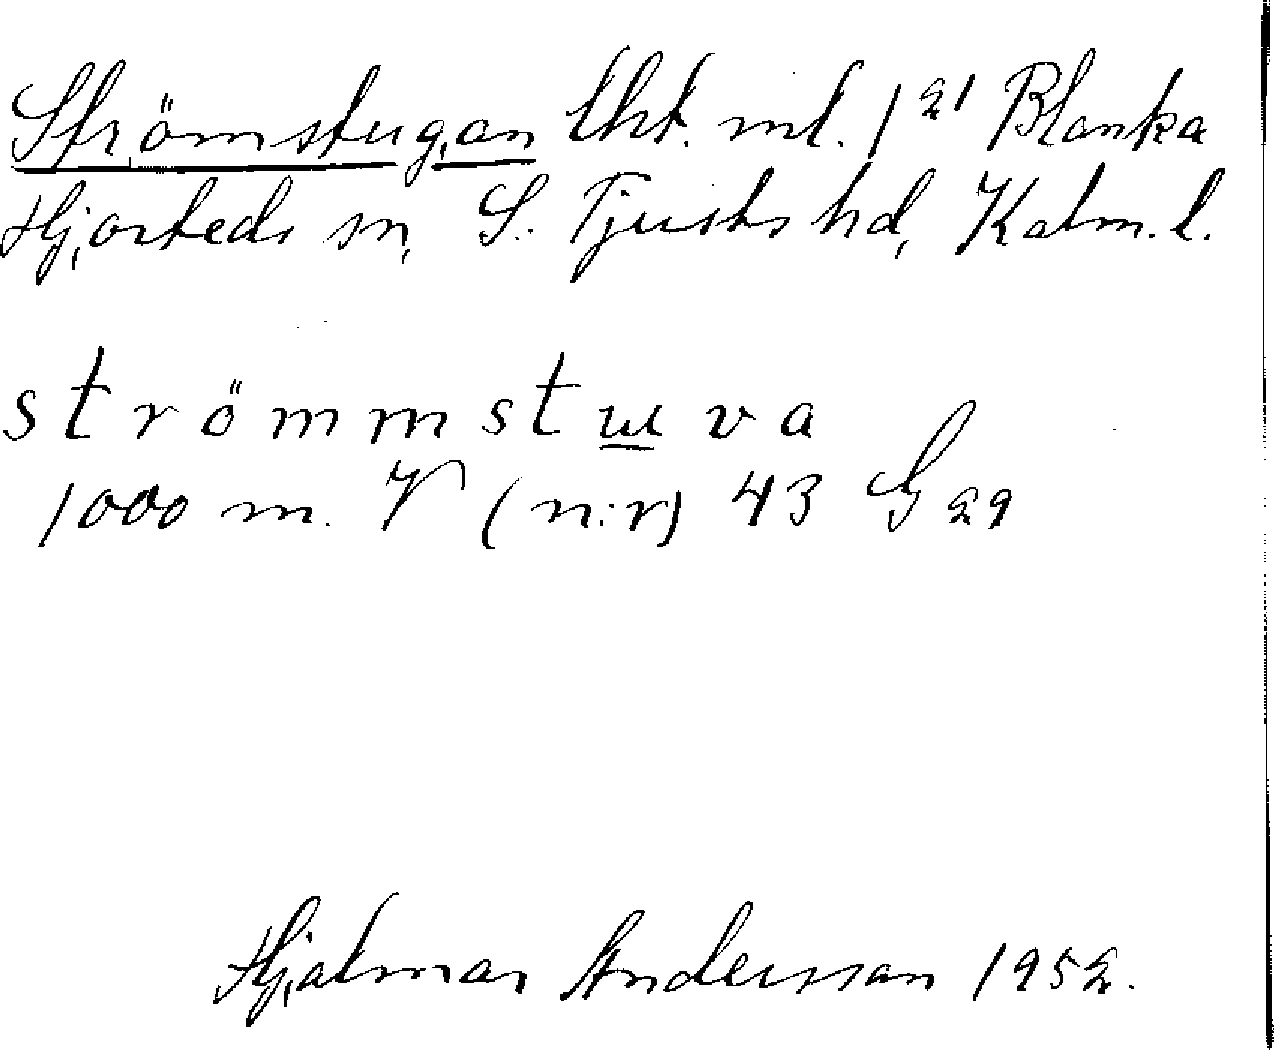 Strömstugan lht. ml. 1²¹ Blanka
Hjorteds sn, S. Tjusts hd, Kalm. l.
strömmstuva
1000 m. V (n:r) 43 G 29
Hjalmar Andersson 1952.